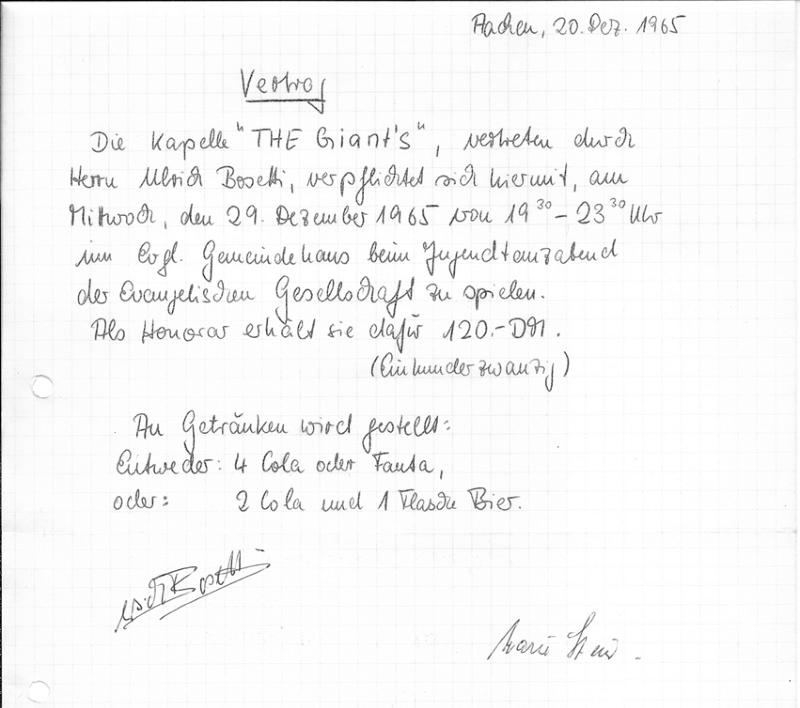 Aachen, 20. Dez. 1965
Vertrag
Die Kapelle "THE Giant's", vertreten durch
Herrn Ulrich Bosetti, verpflichtet sich hiermit, am
Mitwoch, den 29. Dezember 1965 von 19 30 - 23 30 Uhr
im Evgl. Gemeindehaus beim Jugendtanzabend
der Evangelischen Gesellschaft zu spielen.
Als Honorar erhält sie dafür 120.- DM.
(Einhunderzwanzig)
An Getränken wird gestellt:
Entweder: 4 Cola oder Fanta,
oder: 2 Cola und 1 Flasche Bier.
Bosetti